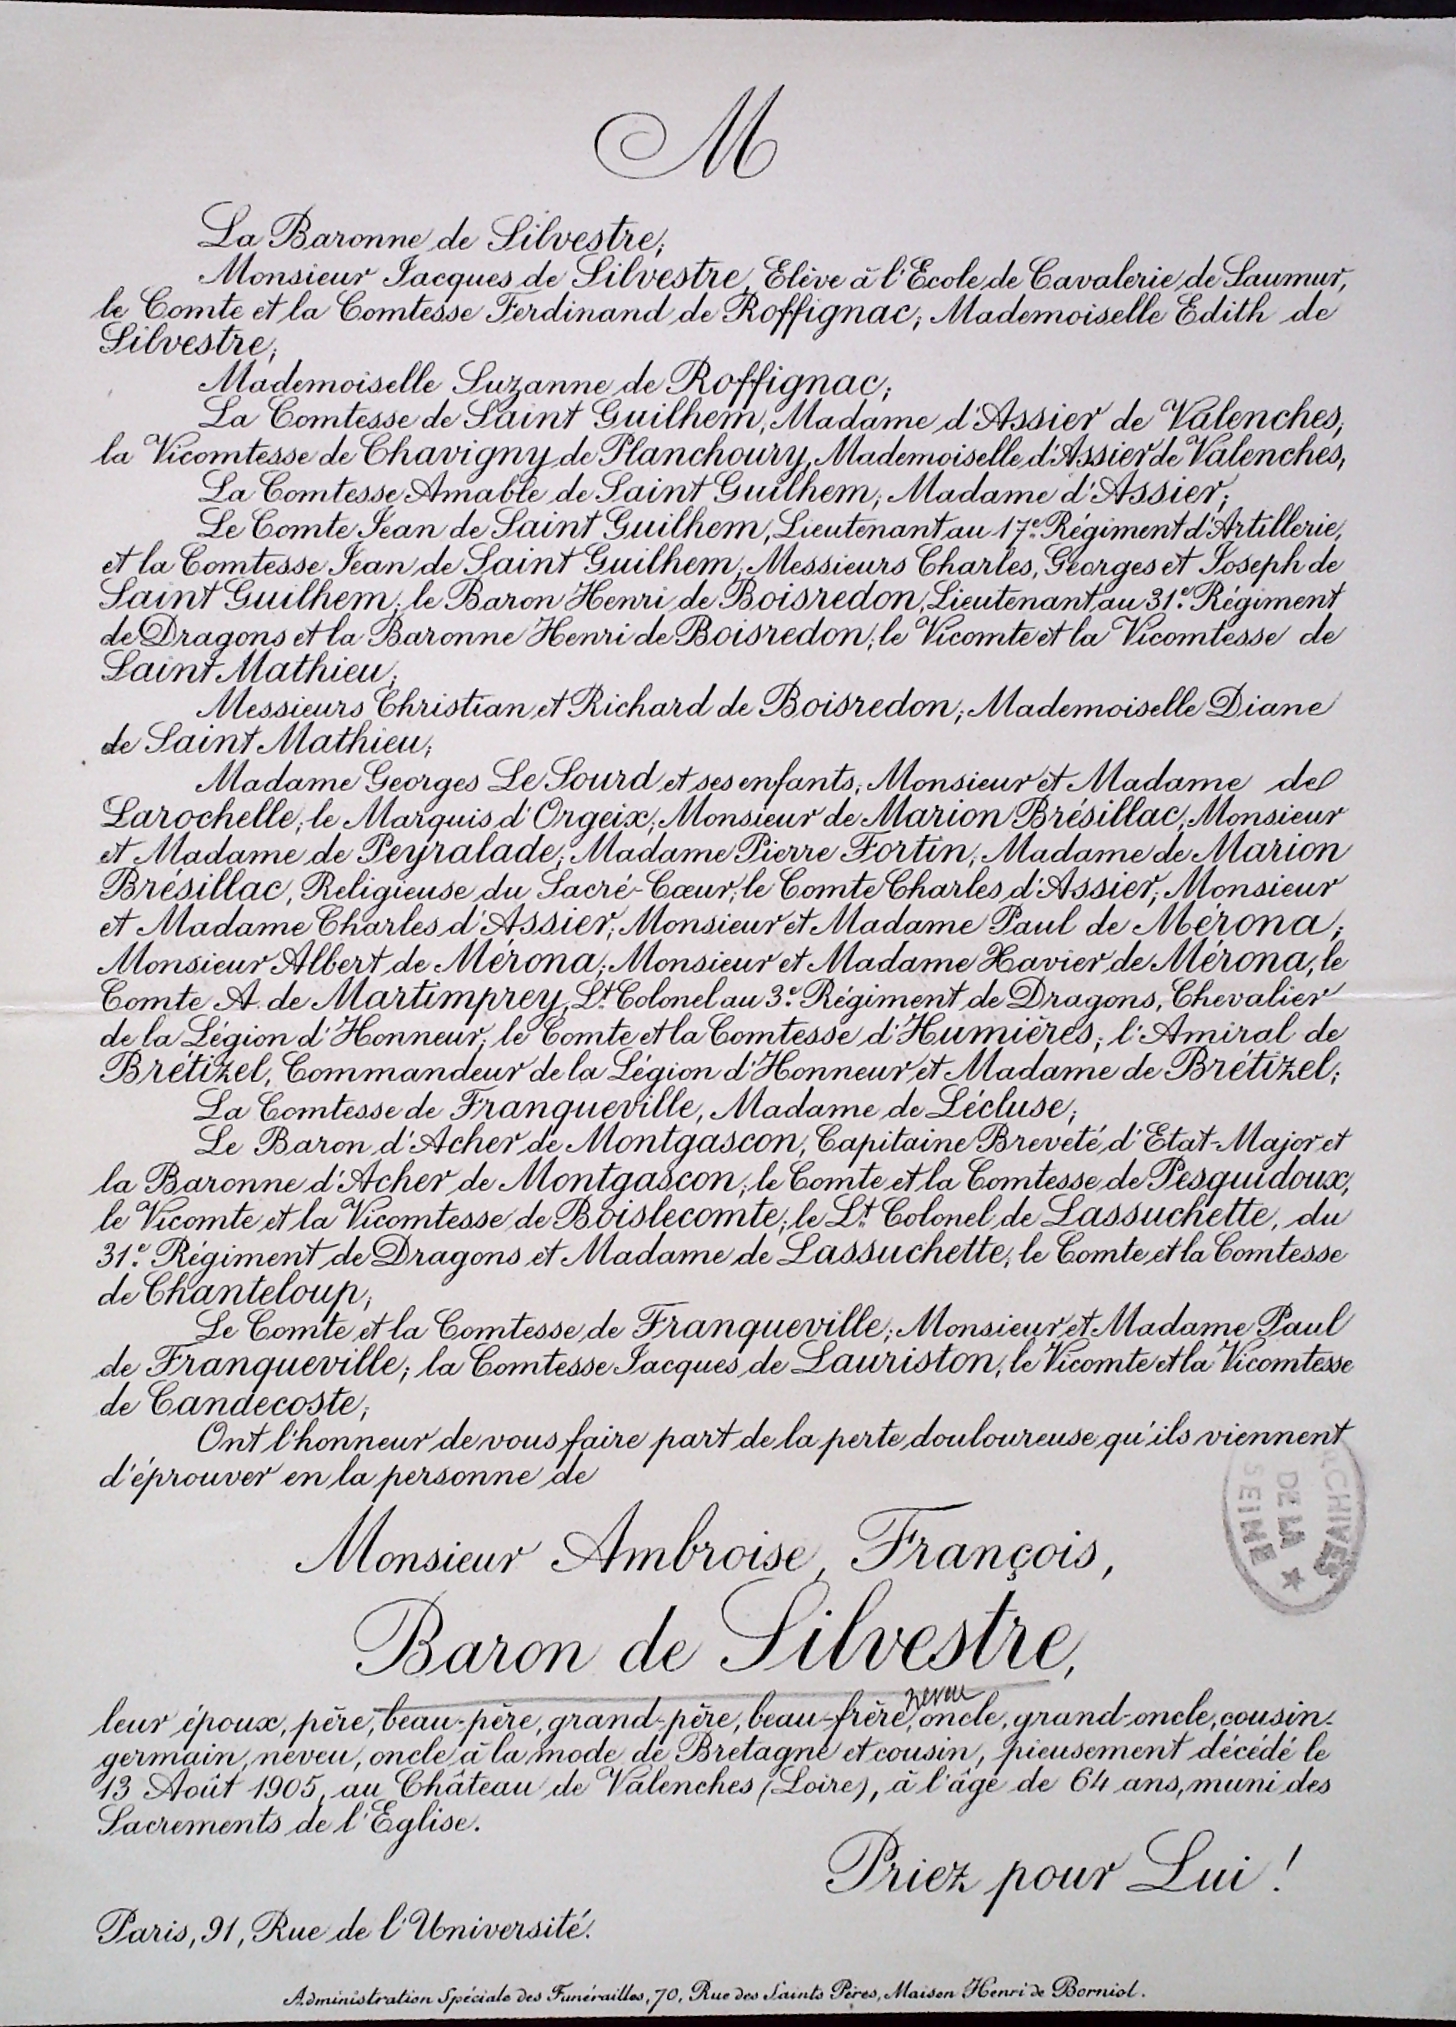 M
La Baronne de Silvestre;
Monsieur Jacques de Silvestre, Elève à l'Ecole de Cavalerie de Saumur,
le Comte et la Comtesse Ferdinand de Roffignac; Mademoiselle Edith de
Silvestre;
Mademoiselle Suzanne de Roffignac;
La Comtesse de Saint Guilhem, Madame d'Assier de Valenches,
la Vicomtesse de Chavigny de Planchoury, Mademoiselle d'Assier de Valenches,
La Comtesse Amable de Saint Guilhem; Madame d'Assier;
Le Comte Jean de Saint Guilhem, Lieutenant au 17e Régiment d'Artillerie,
et la Comtesse Jean de Saint Guilhem, Messieurs Charles, Georges et Joseph de
Saint Guilhem; le Baron Henri de Boisredon, Lieutenant au 31e Régiment
de Dragons et la Baronne Henri de Boisredon; le Vicomte et la Vicomtesse de
Saint Mathieu;
Messieurs Christian et Richard de Boisredon; Mademoiselle Diane
de Saint Mathieu;
Madame Georges Le Sourd et ses enfants; Monsieur et Madame de
Larochelle; le Marquis d'Orgeix; Monsieur de Marion Brésillac, Monsieur
et Madame de Peyralade; Madame Pierre Fortin; Madame de Marion
Brésillac, Religieuse du Sacré-Cœur; le Comte Charles d'Assier; Monsieur
et Madame Charles d'Assier; Monsieur et Madame Paul de Mérona;
Monsieur Albert de Mérona; Monsieur et Madame Xavier de Mérona, le
Comte A. de Martimprey, Lt Colonel au 3e Régiment de Dragons, Chevalier
de la Légion d'Honneur; le Comte et la Comtesse d'Humières; l'Amiral de
Brétizel, Commandeur de la Légion d'Honneur et Madame de Brétizel;
La Comtesse de Franqueville, Madame de Lécluse;
Le Baron d'Acher de Montgascon, Capitaine Breveté d'Etat-Major et
la Baronne d'Acher de Montgascon; le Comte et la Comtesse de Pesquidoux,
le Vicomte et la Vicomtesse de Boislecomte; le Lt Colonel de Lassuchette, du
31e Régiment de Dragons et Madame de Lassuchette; le Comte et la Comtesse
de Chanteloup;
Le Comte et la Comtesse de Franqueville; Monsieur et Madame Paul
de Franqueville; la Comtesse Jacques de Lauriston, le Vicomte et la Vicomtesse
de Candecoste;
Ont l'honneur de vous faire part de la perte douloureuse qu'ils viennent
d'éprouver en la personne de
ARCHIVES
DE LA
SEINE
Monsieur Ambroise, François,
Baron de Silvestre,
neveu
leur époux, père, beau-père, grand-père, beau-frère, oncle, grand-oncle, cousin-
germain, neveu, oncle à la mode de Bretagne et cousin, pieusement décédé le
13 Août 1905, au Château de Valenches (Loire), à l'âge de 64 ans, muni des
Sacrements de l'Eglise.
Priez pour Lui!
Paris, 91, Rue de l'Université.
Administration Spéciale des Funérailles, 70, Rue des Saints Pères, Maison Henri de Borniol.